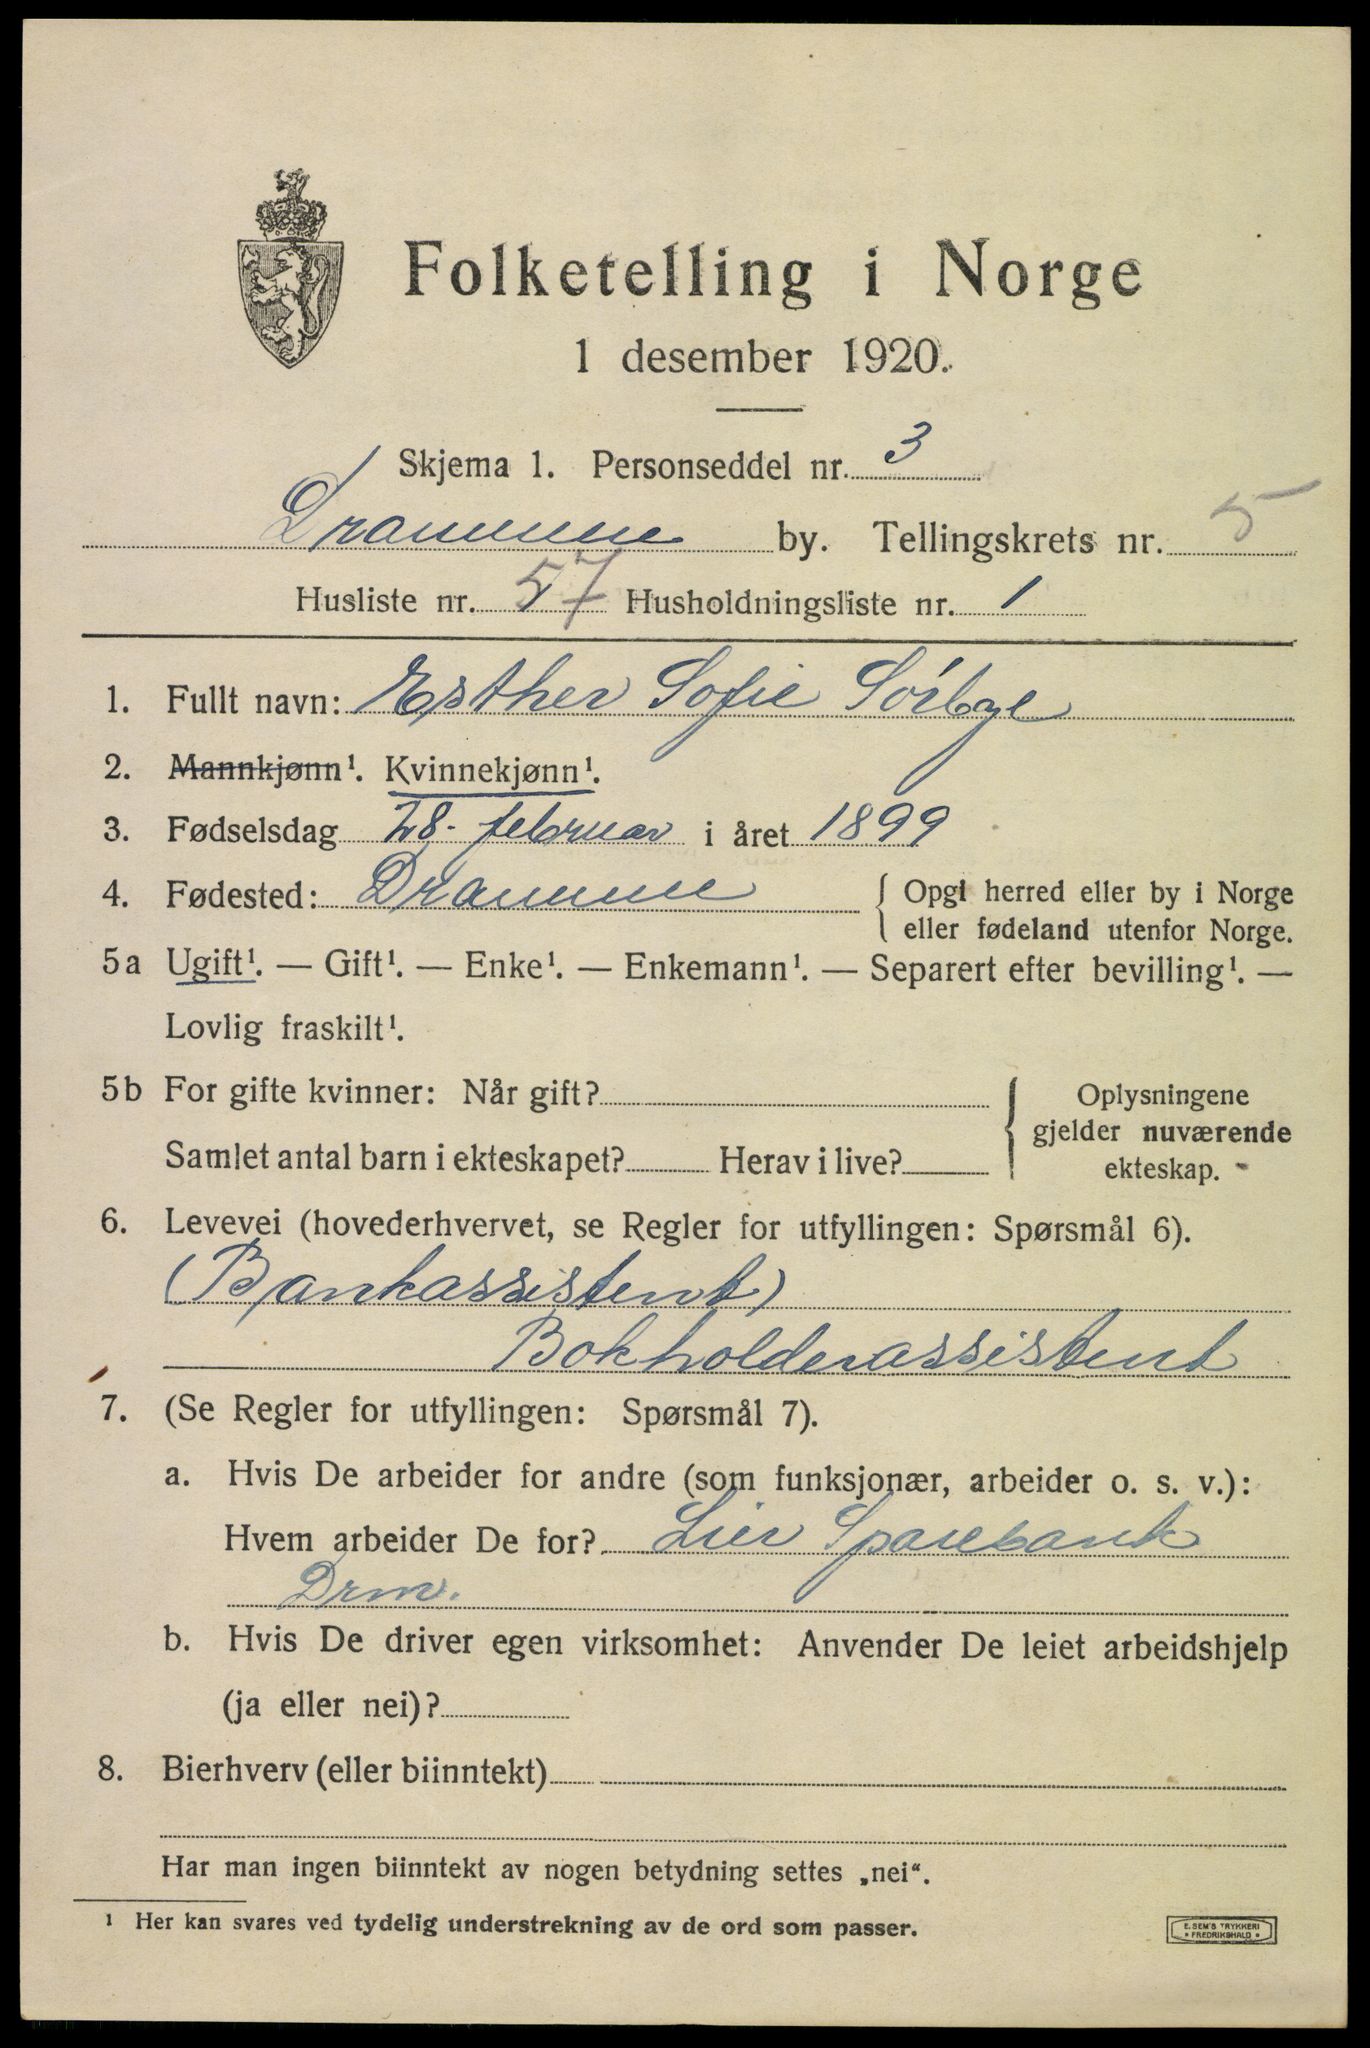 Folketelling i Norge
1 desember 1920.
Skjema 1. Personseddel nr. 3
Drammen by. Tellingskrets nr. 5
Husliste nr. 57 Husholdningsliste nr. 1
1. Fullt navn: Esther Sofie Sörbye
2. Mannkjønn¹. Kvinnekjønn¹.
3. Fødselsdag 28. februar i året 1899
4. Fødested: Drammen { Opgi herred eller by i Norge
eller fødeland utenfor Norge.
5a Ugift¹. — Gift¹. — Enke¹. — Enkemann¹. — Separert efter bevilling¹. —
Lovlig fraskilt¹.
5b For gifte kvinner: Når gift? { Oplysningene
gjelder nuværende
Samlet antal barn i ekteskapet? Herav i live? ekteskap.
6. Levevei (hovederhvervet, se Regler for utfyllingen: Spørsmål 6).
(Bankassistent)
Bokholderassistent
7. (Se Regler for utfyllingen: Spørsmål 7).
a. Hvis De arbeider for andre (som funksjonær, arbeider o. s. v.):
Hvem arbeider De for? Lier Sparebank
Drm.
b. Hvis De driver egen virksomhet: Anvender De leiet arbeidshjelp
(ja eller nei)?
8. Bierhverv (eller biinntekt)
Har man ingen biinntekt av nogen betydning settes „nei“.
¹ Her kan svares ved tydelig understrekning av de ord som passer.
E. SEM'S TRYKKERI
FREDRIKSHALD